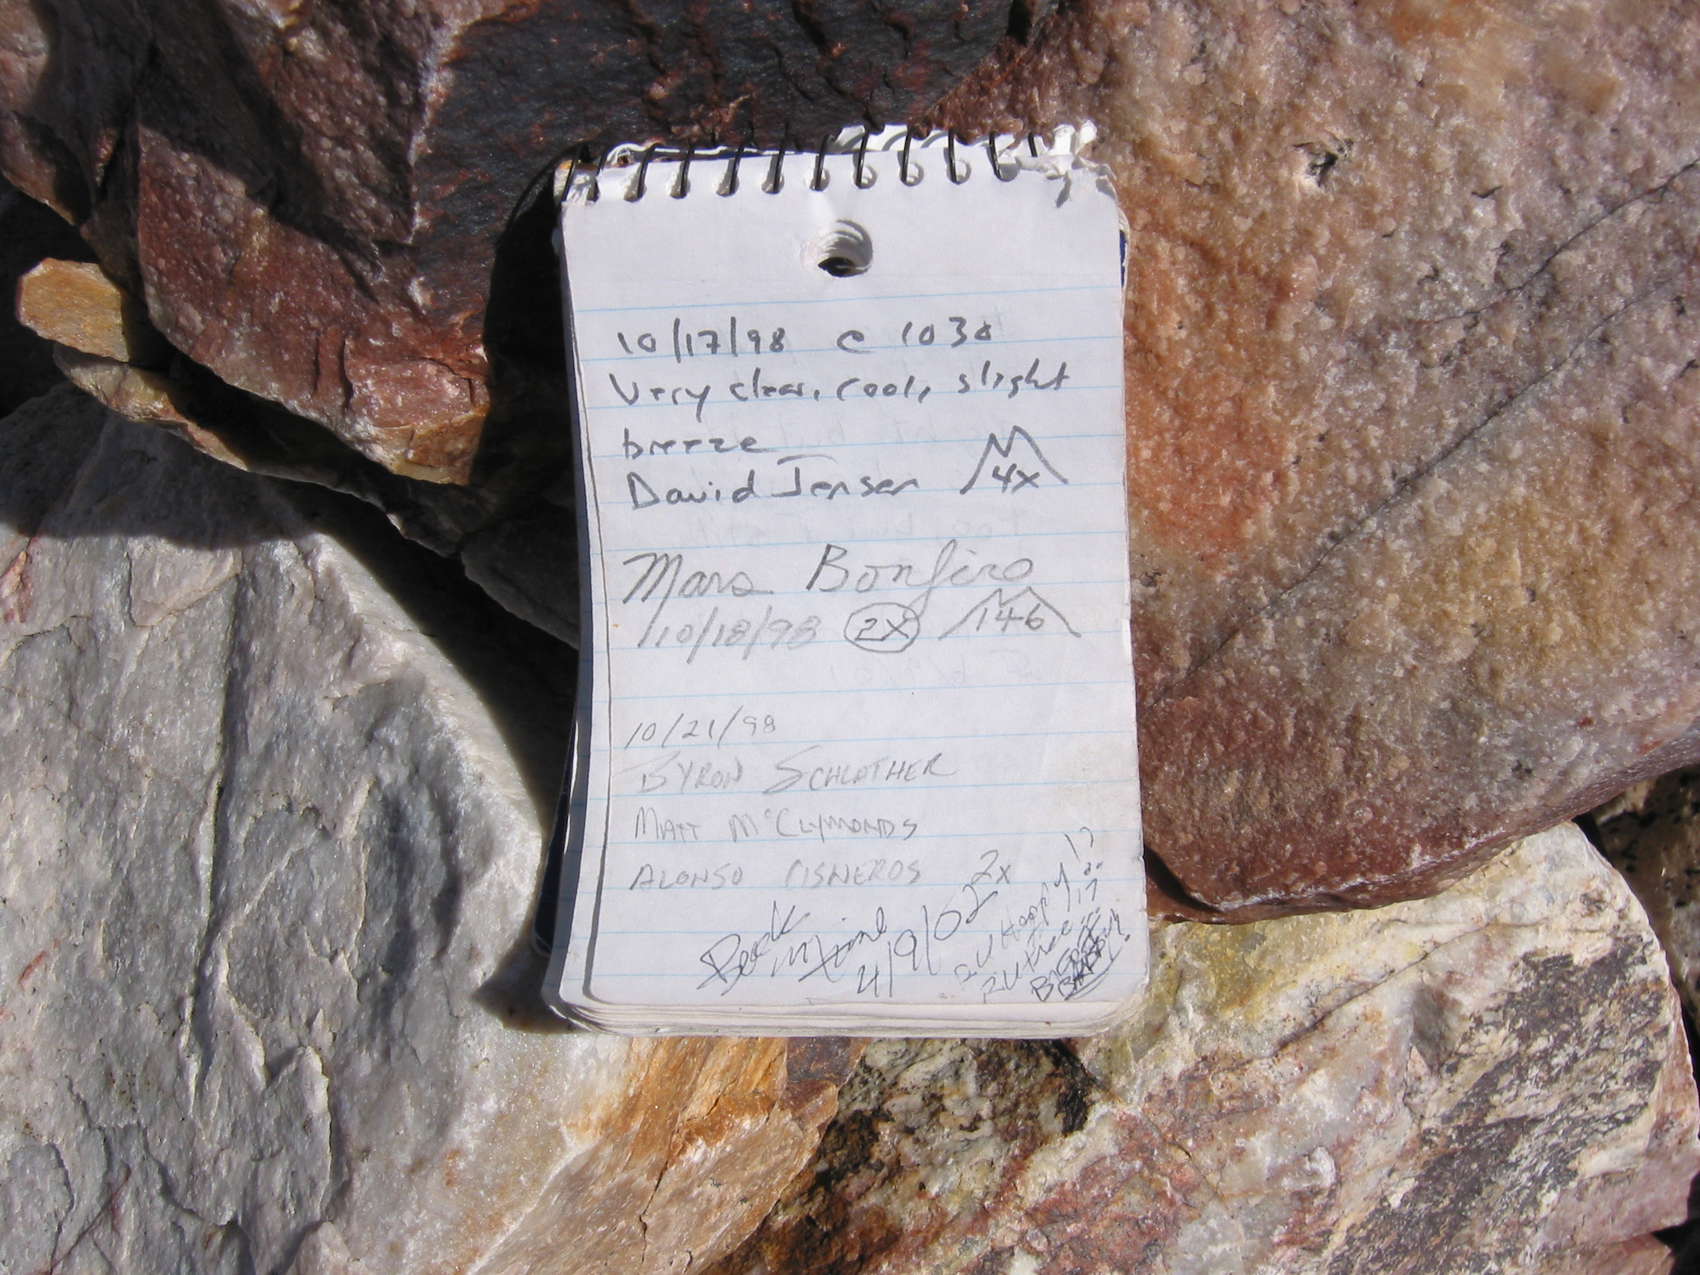 10/17/98 @ 1030
Very clear, cool, slight
breeze
David Jensen 4x
Mars Bonfire
10/18/98 2X 146
10/21/98
BYRON SCHLOTHER
MATT McCLYMONDS
ALONSO CISNEROS
4/9/02 2x